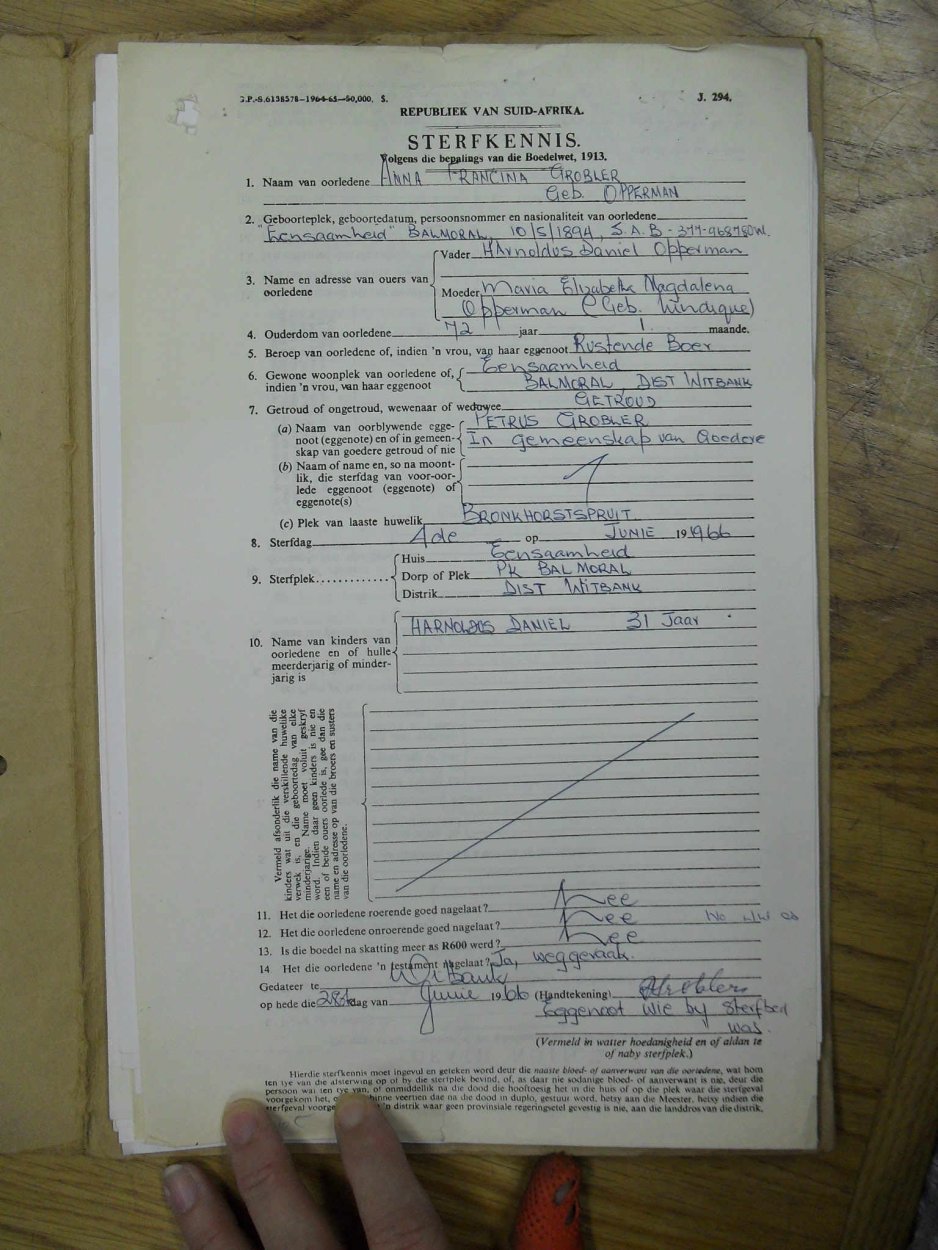 G.P.-S.6138578—1964-65—50,000. S. J. 294.
REPUBLIEK VAN SUID-AFRIKA.
STERFKENNIS.
Volgens die bepalings van die Boedelwet, 1913.
1. Naam van oorledene ANNA FRANCINA GROBLER
Geb. OPPERMAN
2. Geboorteplek, geboortedatum, persoonsnommer en nasionaliteit van oorledene
"Eensaamheid" BALMORAL, 10/5/1894, S.A.B - 377-968780W.
3. Name en adresse van ouers van oorledene
Vader HArnoldus Daniel Opperman
Moeder Maria Elizabeth Magdalena
Opperman (Geb. Lindique)
4. Ouderdom van oorledene 72 jaar 1 maande.
5. Beroep van oorledene of, indien 'n vrou, van haar eggenoot Rustende Boer
6. Gewone woonplek van oorledene of, indien 'n vrou, van haar eggenoot
Eensaamheid
BALMORAL, DIST WITBANK
7. Getroud of ongetroud, wewenaar of weduwee GETROUD
(a) Naam van oorblywende eggenoot (eggenote) en of in gemeenskap van goedere getroud of nie
PETRUS GROBLER
In gemeenskap van Goedere
(b) Naam of name en, so na moontlik, die sterfdag van voor-oorlede eggenoot (eggenote) of eggenote(s)
(c) Plek van laaste huwelik BRONKHORSTSPRUIT
8. Sterfdag 4de op JUNIE 19 1966
9. Sterfplek............
Huis Eensaamheid
Dorp of Plek PK BALMORAL
Distrik DIST WITBANK
10. Name van kinders van oorledene en of hulle meerderjarig of minderjarig is
HARNOLDUS DANIEL 31 Jaar
Vermeld afsonderlik die name van die
kinders wat uit die verskillende huwelike
verwek is, en die geboortedag van elke
minderjarige. Name moet voluit geskryf
word. Indien daar geen kinders is nie en
een of beide ouers oorlede is, gee dan die
name en adresse op van die broers en susters
van die oorledene.
11. Het die oorledene roerende goed nagelaat? Nee
12. Het die oorledene onroerende goed nagelaat? Nee
13. Is die boedel na skatting meer as R600 werd? Nee
14 Het die oorledene 'n testament nagelaat? Ja, weggeraak.
Gedateer te Witbank
op hede die 28ste dag van Junie 1966 (Handtekening) Groblers
Eggenoot wie by Sterfbed
was.
(Vermeld in watter hoedanigheid en of aldan te
of naby sterfplek.)
Hierdie sterfkennis moet ingevul en geteken word deur die naaste bloed- of aanverwant van die oorledene, wat hom
ten tye van die afsterwing op of by die sterfplek bevind, of, as daar nie sodanige bloed- of aanverwant is nie, deur die
persoon wat ten tye van, of onmiddellik na die dood die hooftoesig het in die huis of op die plek waar die sterfgeval
voorgekom het, binne veertien dae na die dood in duplo, gestuur word, hetsy aan die Meester, hetsy indien die
sterfgeval 'n distrik waar geen provinsiale regeringsetel gevestig is nie, aan die landdros van die distrik,